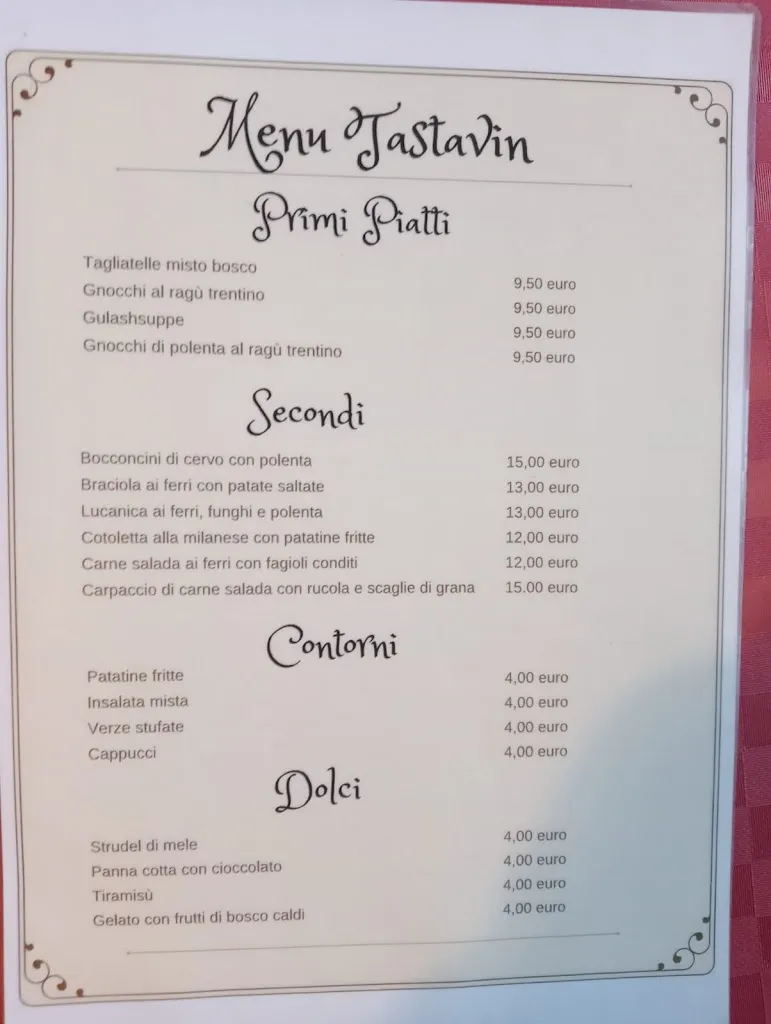 Menu Tastavin
Primi Piatti
Tagliatelle misto bosco 9,50 euro
Gnocchi al ragù trentino 9,50 euro
Gulashsuppe 9,50 euro
Gnocchi di polenta al ragù trentino 9,50 euro
Secondi
Bocconcini di cervo con polenta 15,00 euro
Braciola ai ferri con patate saltate 13,00 euro
Lucanica ai ferri, funghi e polenta 13,00 euro
Cotoletta alla milanese con patatine fritte 12,00 euro
Carne salada ai ferri con fagioli conditi 12,00 euro
Carpaccio di carne salada con rucola e scaglie di grana 15.00 euro
Contorni
Patatine fritte 4,00 euro
Insalata mista 4,00 euro
Verze stufate 4,00 euro
Cappucci 4,00 euro
Dolci
Strudel di mele 4,00 euro
Panna cotta con cioccolato 4,00 euro
Tiramisù 4,00 euro
Gelato con frutti di bosco caldi 4,00 euro